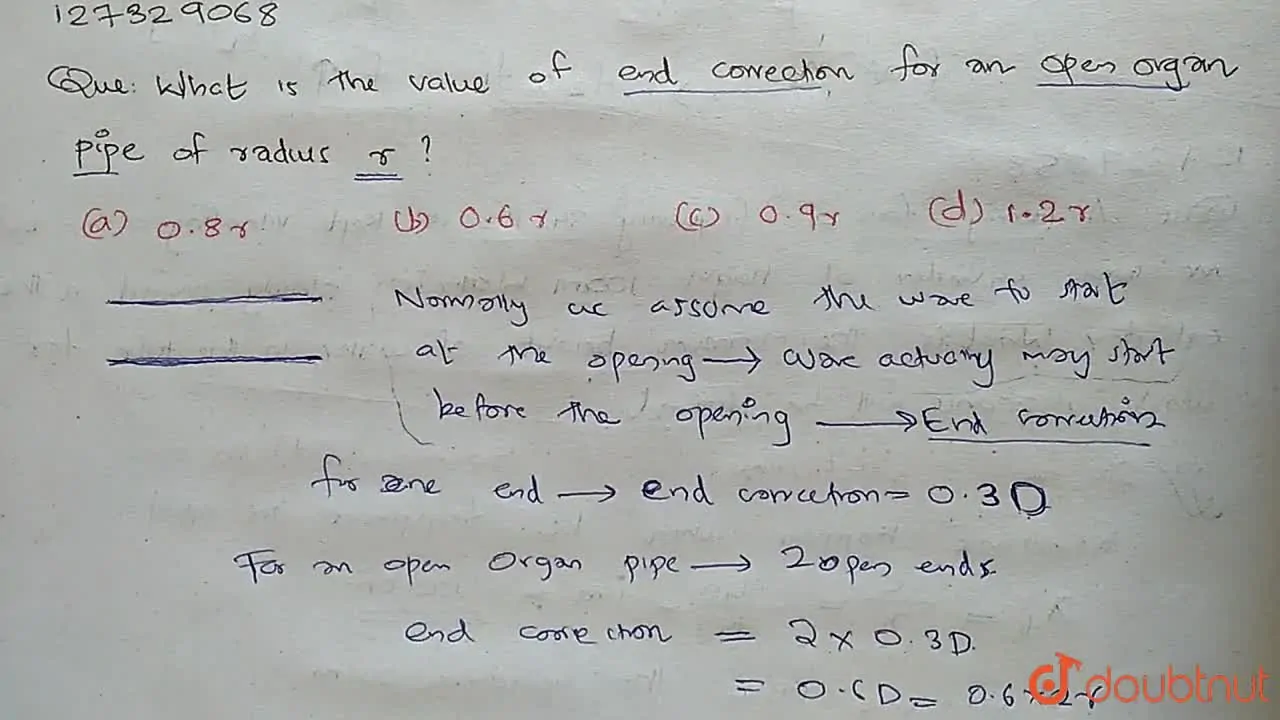 127329068
Que: What is the value of end correction for an open organ
pipe of radius r ?
(a) 0.8r (b) 0.6 r (c) 0.9r (d) 1.2r
Normally we assume the wave to start
at the opening → Wave actually may start
before the opening → End correction
for one end → end correction = 0.3 D
For an open organ pipe → 2 open ends.
end correction = 2 × 0.3 D.
= 0.6 D = 0.6 × 2r
doubtnut